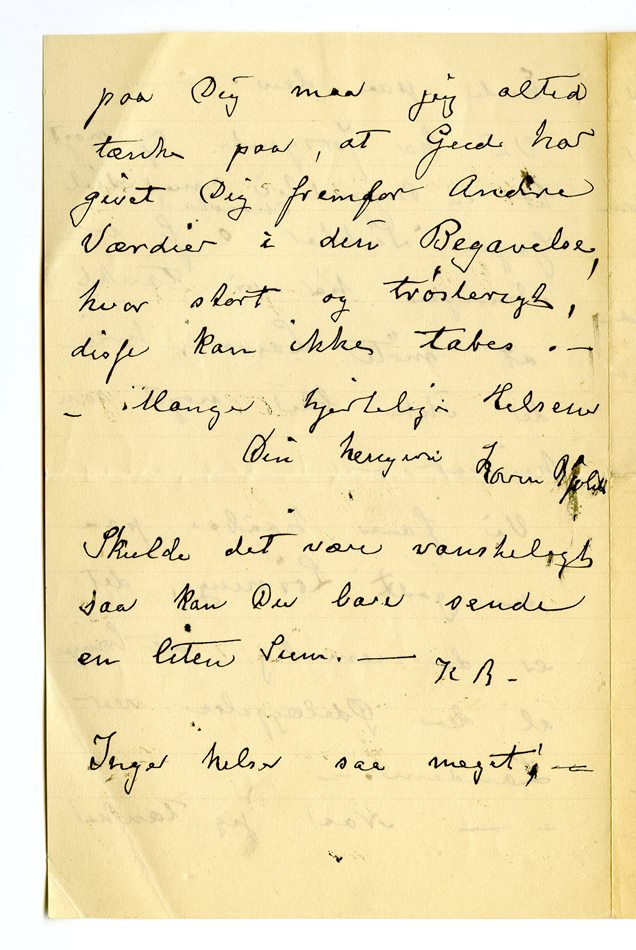 paa Dig maa jeg altid
tænke paa, at Gud har
givet Dig fremfor Andre
Værdier i den Begavelse,
hvor stort og trøsterigt,
disse kan ikke tabes. —
— Mange hjertelige Helsener
Din hengivne Karen
Skulde det være vanskeligt
saa kan Du bare sende
en liten Sum. — K B —
Inger helser saa meget! —